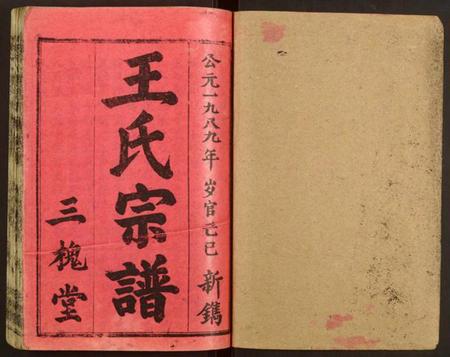 公元一九八九年 岁官己巳 新鐫
王氏宗譜
三槐堂